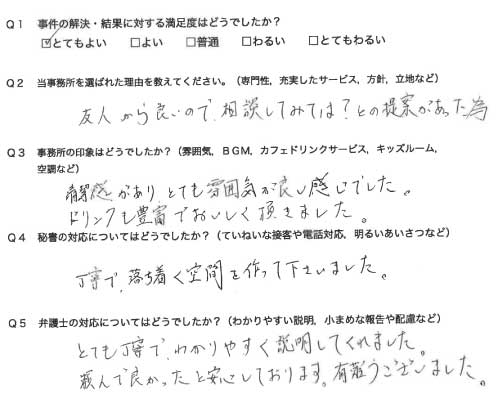 Q1 事件の解決・結果に対する満足度はどうでしたか?
☑とてもよい □よい □普通 □わるい □とてもわるい
Q2 当事務所を選ばれた理由を教えてください。(専門性，充実したサービス，方針，立地など)
友人から良いので、相談してみては？との提案があった為
Q3 事務所の印象はどうでしたか？(雰囲気，BGM，カフェドリンクサービス，キッズルーム，
空調など)
清潔感があり とても雰囲気が良い感じでした。
ドリンクも豊富でおいしく頂きました。
Q4 秘書の対応についてはどうでしたか？(ていねいな接客や電話対応，明るいあいさつなど)
丁寧で、落ち着く空間を作って下さいました。
Q5 弁護士の対応についてはどうでしたか？(わかりやすい説明，小まめな報告や配慮など)
とても丁寧で、わかりやすく説明してくれました。
頼んで良かったと安心しております。有難うございました。